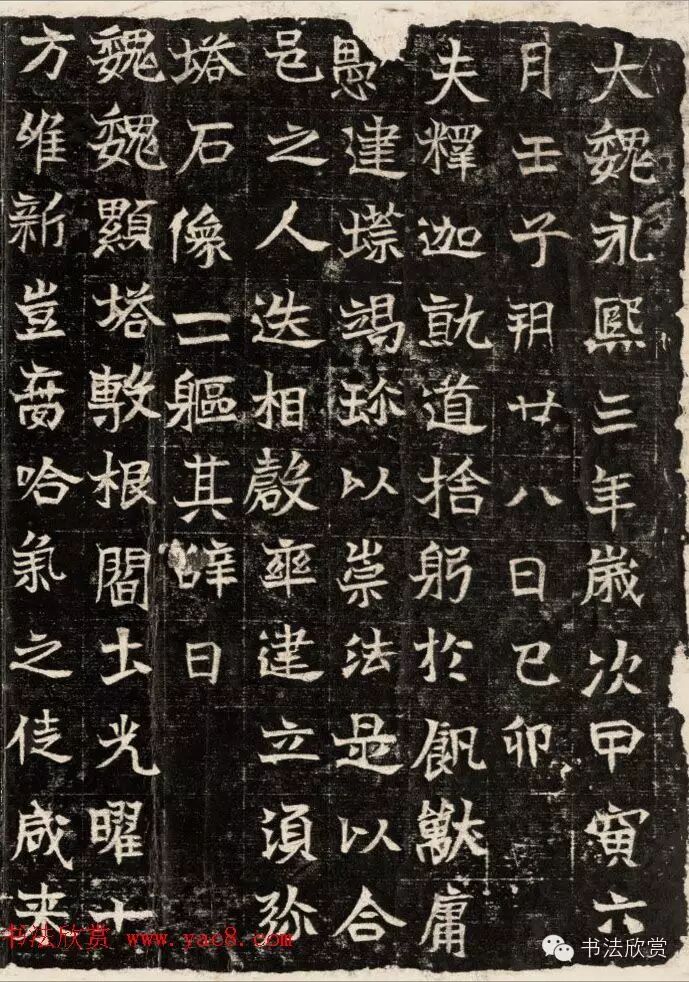 大魏永熙三年歲次甲寅六
月壬子朔廿八日己卯
夫釋迦就道捨躬於飢獸庸
愚建㙮竭珎以崇法是以合
邑之人迭相磬率建立須弥
塔石像二軀其辞曰
魏魏顯塔敷根閻土光曜十
方唯新豈啻哈氣之徒咸来
书法欣赏 www.yac8.com
书法欣赏